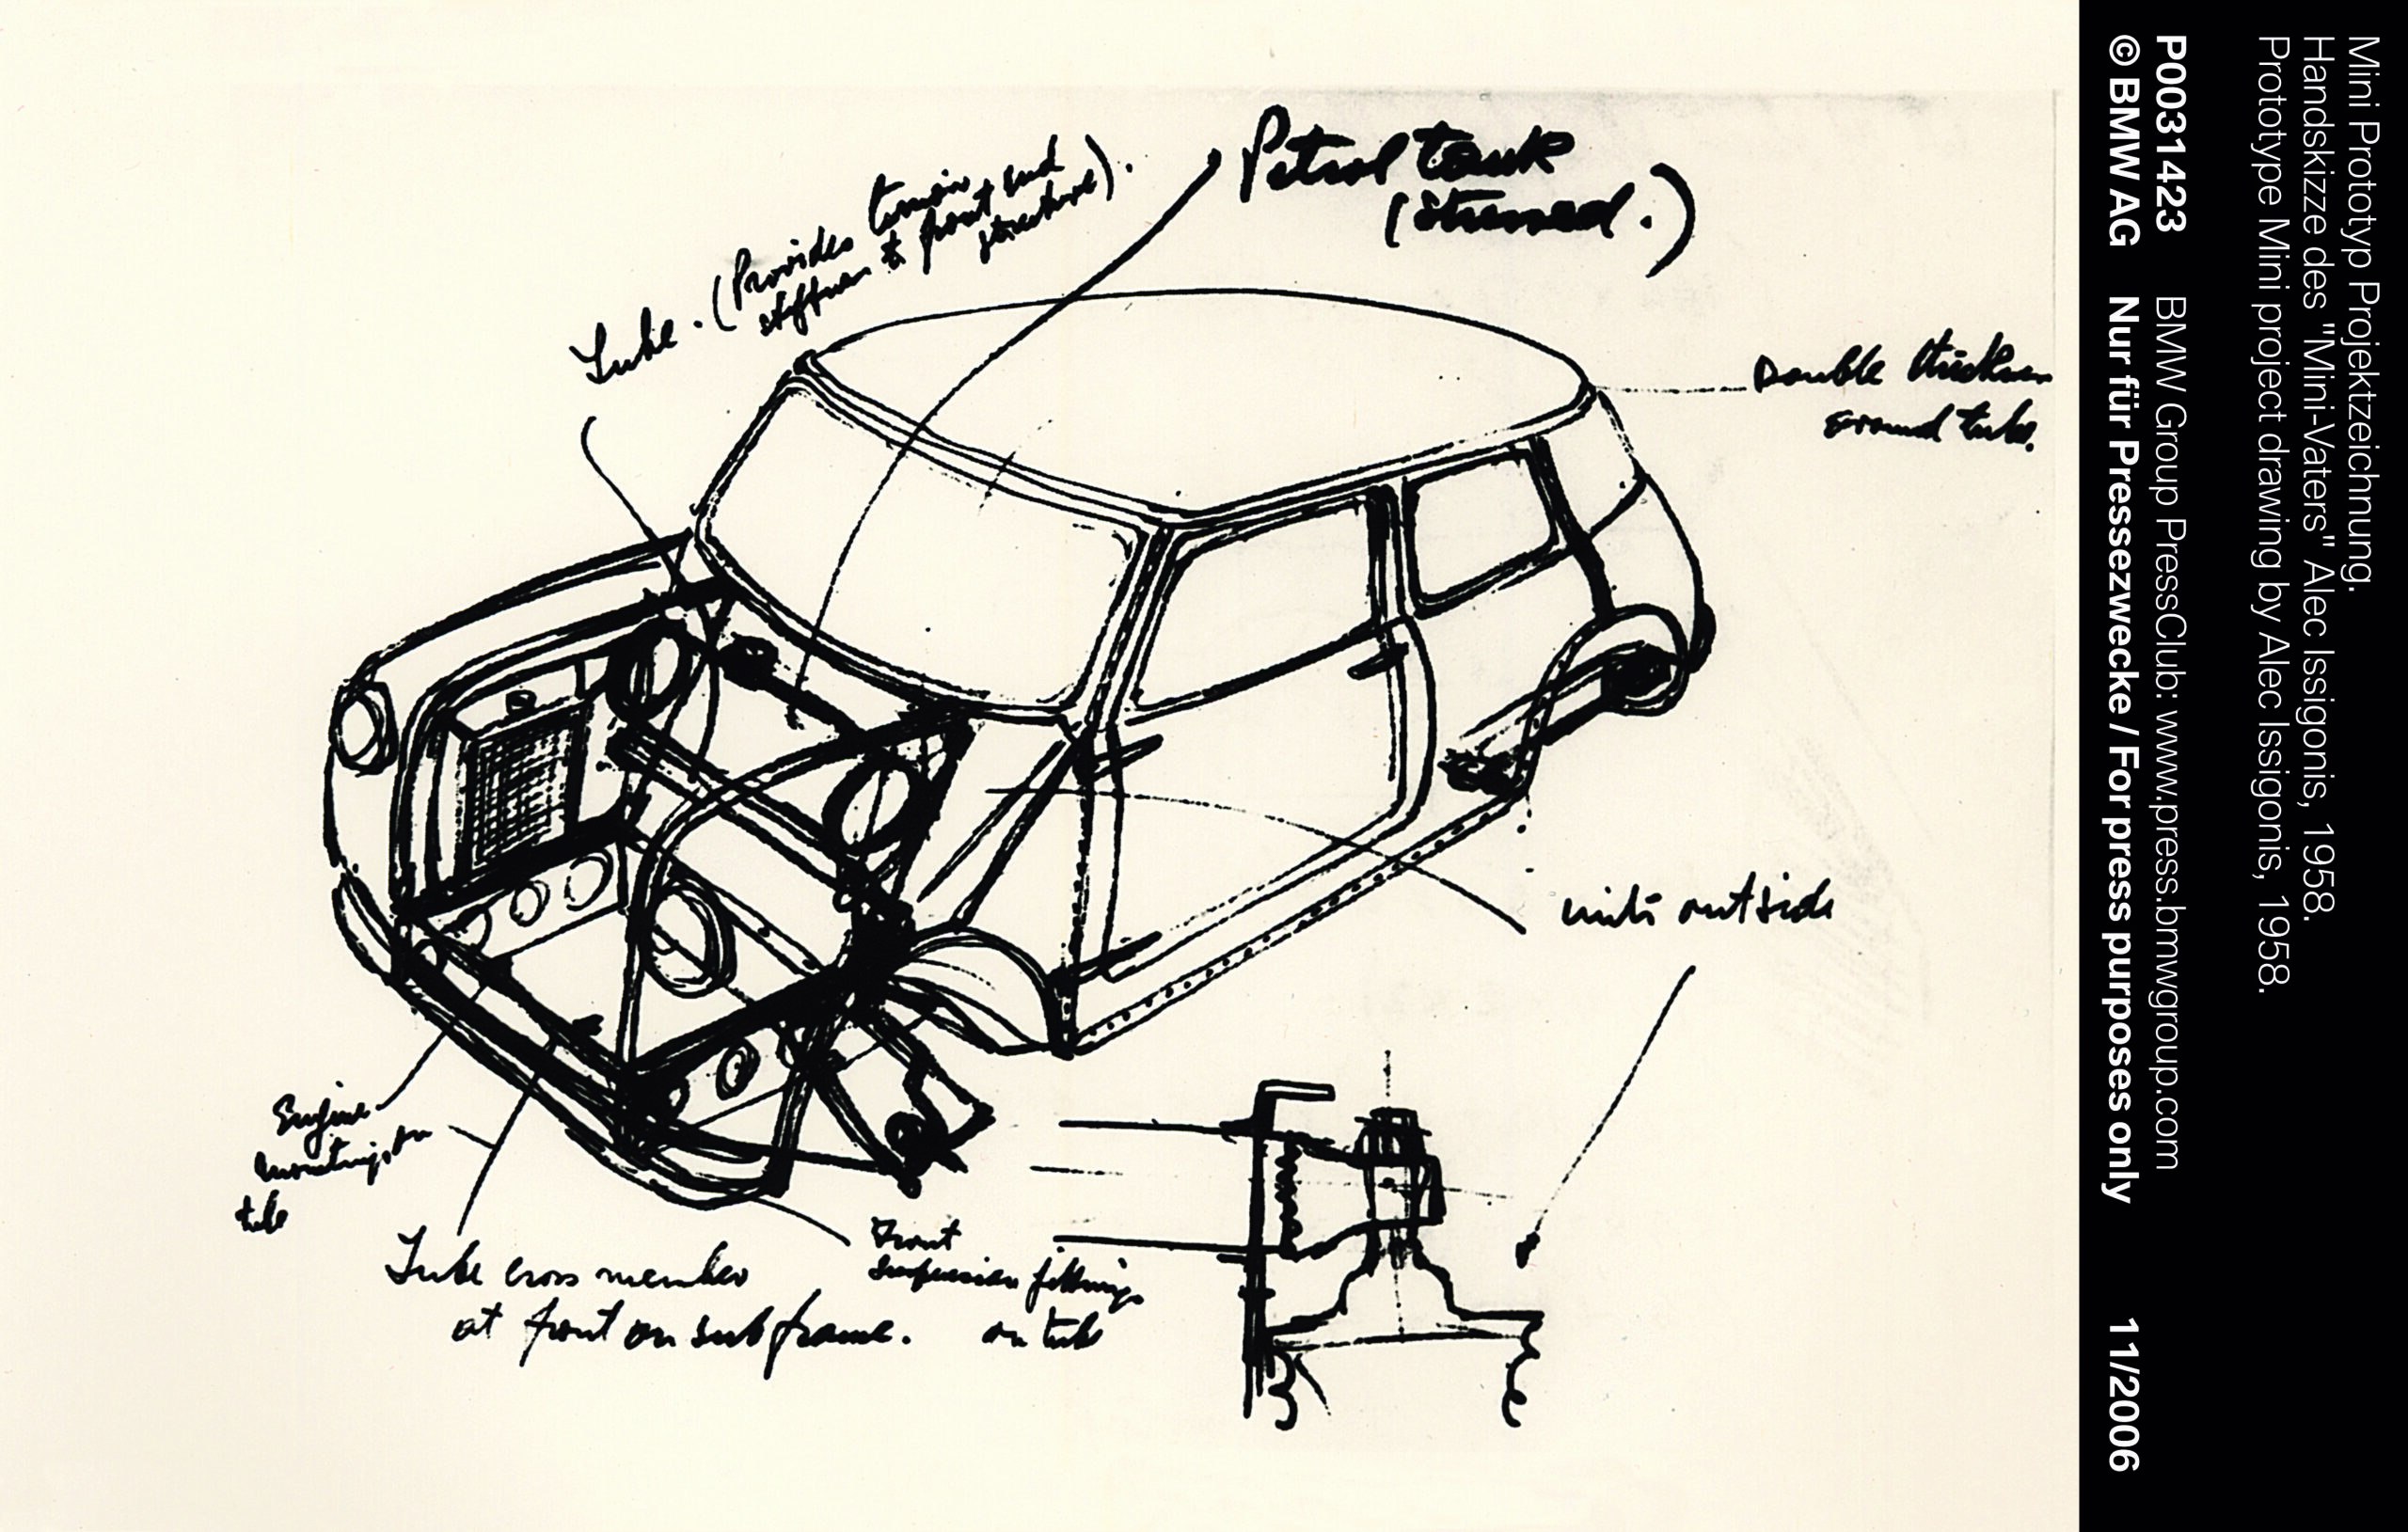 Petrol tank
(stressed.)
Tube. (Provides torsion, and
stiffness to front
structure).
Double thickness
around tube.
units outside
Engine
mountings on
tube
Tube cross member
at front on sub frame.
Front
suspension fittings
on tube
Mini Prototyp Projektzeichnung.
Handskizze des "Mini-Vaters" Alec Issigonis, 1958.
Prototype Mini project drawing by Alec Issigonis, 1958.
P0031423 BMW Group PressClub: www.press.bmwgroup.com
© BMW AG Nur für Pressezwecke / For press purposes only 11/2006